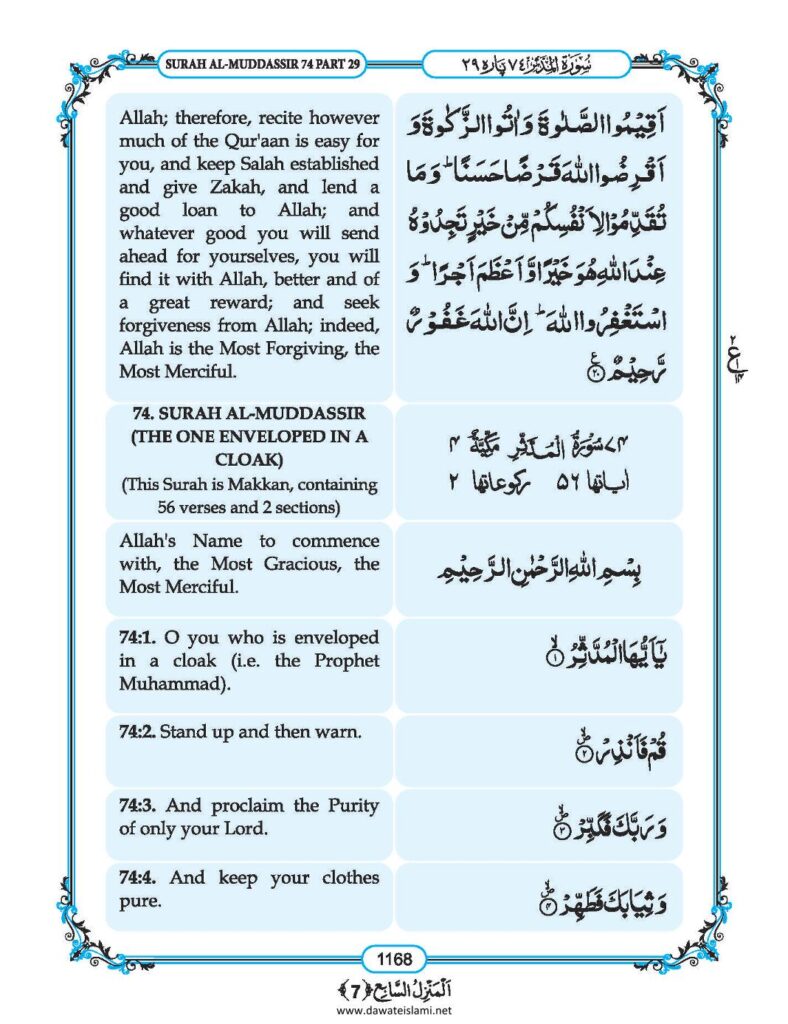 SURAH AL-MUDDASSIR 74 PART 29
سُوْرَةُ الْمُدَّثِّر ٧٤ پاره ٢٩
Allah; therefore, recite however
much of the Qur'aan is easy for
you, and keep Salah established
and give Zakah, and lend a
good loan to Allah; and
whatever good you will send
ahead for yourselves, you will
find it with Allah, better and of
a great reward; and seek
forgiveness from Allah; indeed,
Allah is the Most Forgiving, the
Most Merciful.
اَقِيْمُوا الصَّلٰوةَ وَ اٰتُوا الزَّكٰوةَ وَ
اَقْرِضُوا اللّٰهَ قَرْضًا حَسَنًا ؕ وَ مَا
تُقَدِّمُوْا لِاَنْفُسِكُمْ مِّنْ خَيْرٍ تَجِدُوْهُ
عِنْدَ اللّٰهِ هُوَ خَيْرًا وَّ اَعْظَمَ اَجْرًا ؕ وَ
اسْتَغْفِرُوا اللّٰهَ ؕ اِنَّ اللّٰهَ غَفُوْرٌ
رَّحِيْمٌ ﴿٢٠﴾
٢
ع
١٤
74. SURAH AL-MUDDASSIR
(THE ONE ENVELOPED IN A
CLOAK)
(This Surah is Makkan, containing
56 verses and 2 sections)
٧٤ سُوْرَةُ الْمُدَّثِّرِ مَكِّيَّةٌ ٤
اٰیاتها ٥٦ رکوعاتها ٢
Allah's Name to commence
with, the Most Gracious, the
Most Merciful.
بِسْمِ اللّٰهِ الرَّحْمٰنِ الرَّحِيْمِ
74:1. O you who is enveloped
in a cloak (i.e. the Prophet
Muhammad).
يٰۤاَيُّهَا الْمُدَّثِّرُ ۙ﴿١﴾
74:2. Stand up and then warn.
قُمْ فَاَنْذِرْ ۪ۙ﴿٢﴾
74:3. And proclaim the Purity
of only your Lord.
وَ رَبَّكَ فَكَبِّرْ ۪ۙ﴿٣﴾
74:4. And keep your clothes
pure.
وَ ثِيَابَكَ فَطَهِّرْ ۪ۙ﴿٤﴾
1168
اَلْمَنْزِلُ السَّابِع ﴿7﴾
www.dawateislami.net